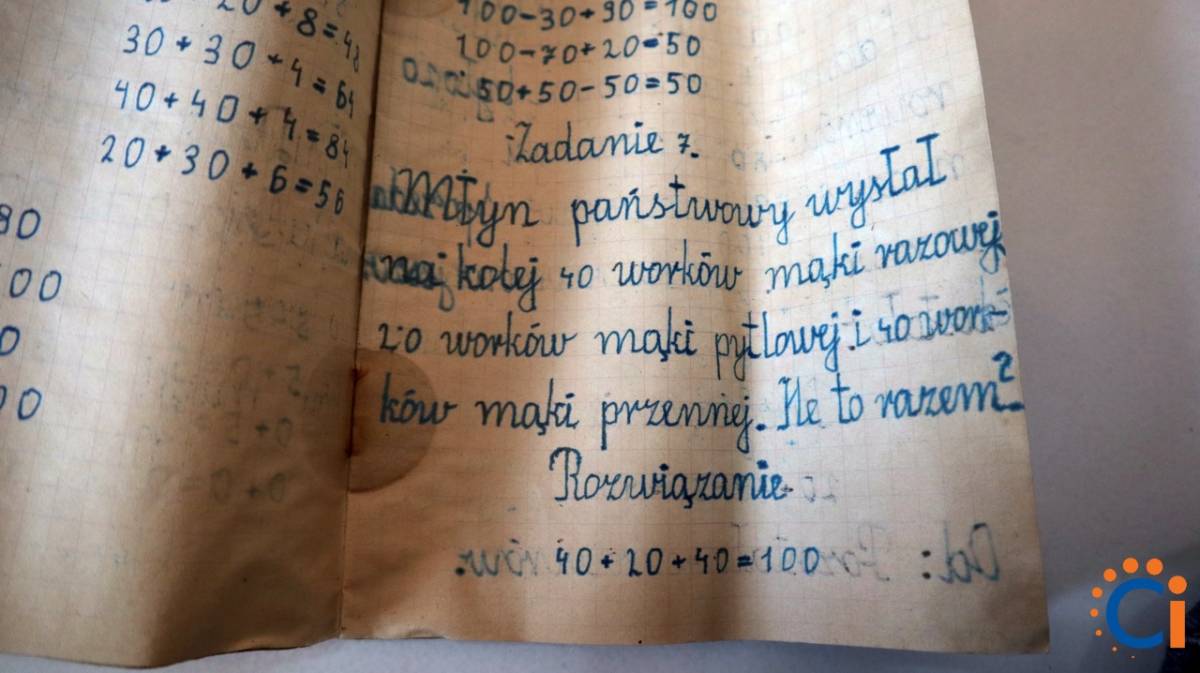 20+8=48
30+30+4=64
40+40+4=84
20+30+6=56
80
00
0
00
100-30+30=100
100-70+20=50
50+50-50=50
Zadanie 7.
Młyn państwowy wysłał
na kolej 40 worków mąki razowej
20 worków mąki pytlowej i 40 wor-
ków mąki przennej. Ile to razem?
Rozwiązanie
40+20+40=100
Ci